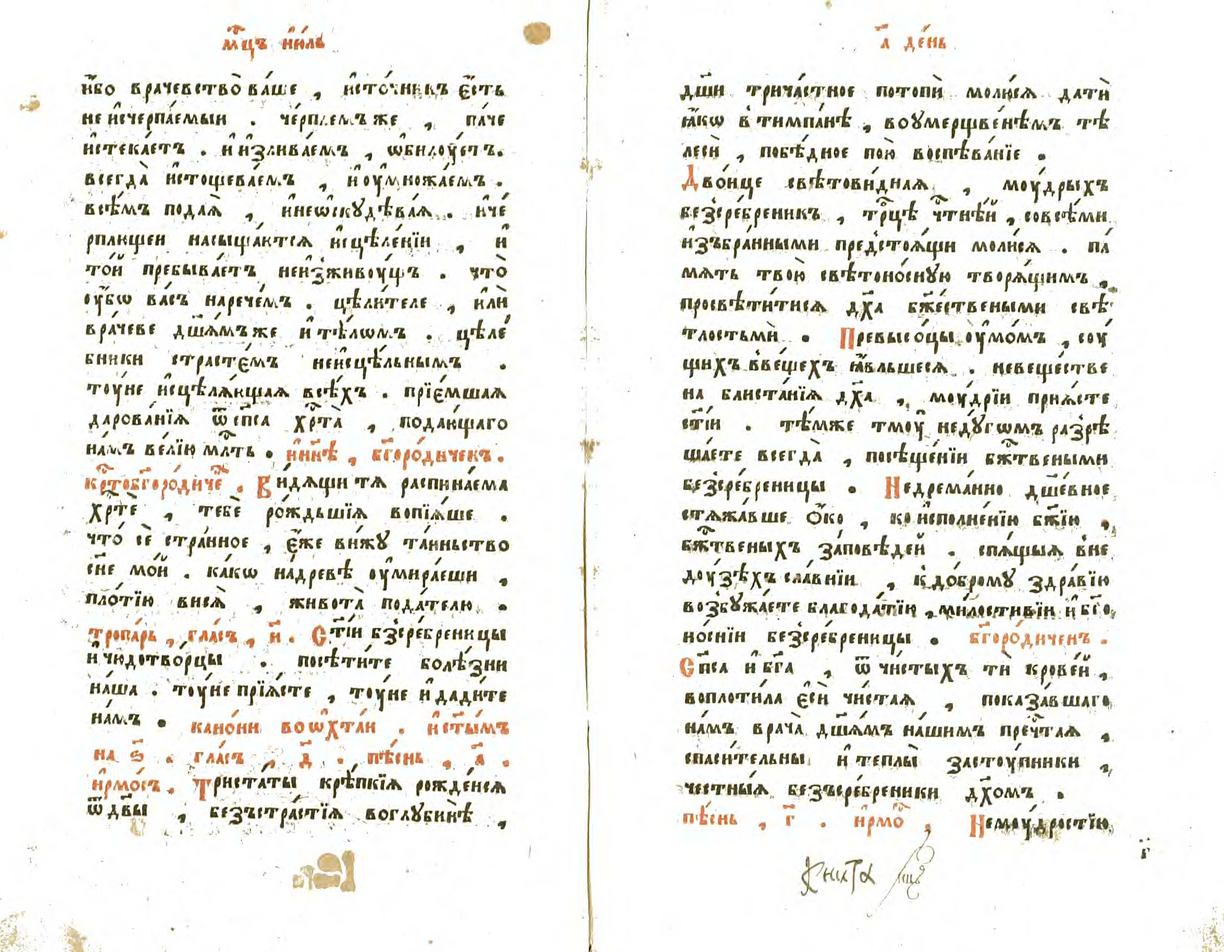 мⷭ҇цъ ию́ль
и҆́бо врачевство̀ ва́ше , и҆сто́чникъ є҆́сть
не и҆счерпа́емыи . че́рплемъ же , па́че
и҆стека́етъ . и҆ и҆злива́емъ , ѡ҆билꙋ́етъ.
всегда̀ и҆стощева́емъ , и҆ ѹ҆множа́емъ .
всѣ́мъ подаѧ̀ , и҆ не ѡ҆скꙋдѣва́ѧ . и҆ че́
рплющеи насыща́ютсѧ и҆сцѣле́нїи , и҆
то́и пребыва́етъ неи҆зживоу́щъ . что̀
ѹ҆́бѡ ва́съ нарече́мъ . цѣли́теле , и҆лѝ
враче́ве дш҃а́мъ же и҆ тѣлѡ́мъ . цѣле́
бники страсте́мъ неи҆сцѣ́льнымъ .
тоу́не и҆сцѣлѧ́ющаѧ всѣ́хъ . прїе́мшаѧ
дарова́нїѧ ѿ сп҃са хрⷭ҇та̀ , подаю́щаго
на́мъ ве́лїю млⷭ҇ть . и҆ нн҃ѣ , бг҃оро́диченъ .
крⷭ҇тобг҃оро́диче . Ви́дѧщи тѧ распина́ема
хрⷭ҇тѐ , тебѐ ро́ждьшїѧ вопїѧ́ше .
что̀ сѐ стра́нное , є҆́же ви́жꙋ та́иньство
сн҃е мо́и . ка́кѡ на́древѣ ѹ҆мира́еши ,
пло́тїю висѧ̀ , живота̀ пода́телю .
тропа́рь , гла́съ , и҃ . Ст҃їи безсре́бреницы
и҆ чюдотво́рцы . посѣти́те болѣ́зни
на́ша . тоу́не прїѧ́сте , тоу́не и҆ дади́те
на́мъ . кано́ни во ѻ҆хта́и . и҆ ст҃ы́мъ
на ѕ҃ . гла́съ , д҃ . пѣ́снь , а҃ .
і҆рмо́съ . Триста́ты крѣ́пкїѧ рожде́исѧ
ѿ дв҃ы , безъстра́стїѧ во глубинѣ̀ ,
а҃ де́нь
дш҃и трича́стное потопѝ молю́сѧ да́ти
ꙗ҆́кѡ в тимпа́нѣ , во ѹ҆мерщвенѣ́мъ тѣ
лесѝ , побѣ́дное пою̀ воспѣва́нїе .
Дво́ице свѣтови́днаѧ , моу́дрыхъ
безсре́бреникъ , трⷪ҇цѣ чⷭ҇тнѣ́и , со всѣ́ми
и҆зъбра́нными предстоѧ́щи моли́сѧ . па́
мѧть твою̀ свѣтоно́сную творѧ́щимъ ,
просвѣти́тисѧ дх҃а бж҃е́ствеными свѣ́
тлостьмѝ . Превысо́цы ѹ҆мо́мъ , соу́
щихъ в ве́щехъ ꙗ҆́вльшесѧ . невеще́стве
на блиста́нїѧ дх҃а , моу́дрїи прїѧ́сте
ст҃їи . тѣ́мже тмоу̀ недꙋ́гѡмъ разрѣ
ша́ете всегда̀ , посѣще́нїи бжⷭ҇твеными
безсре́бреницы . Недрема́нно дш҃е́вное
стѧжа́вше ѻ҆́ко , ко и҆сполне́нїю бж҃їю ,
бжⷭ҇твеныхъ за́повѣдей . спѧ́щыѧ в не
доу́зѣхъ сла́внїи , к до́брому здра́вїю
возбужа́ете благода́тїю , ми́лостивїи и҆ бг҃о
но́снїи безсре́бреницы . бг҃оро́диченъ .
Сп҃са и҆ бг҃а , ѿ чи́стыхъ тѝ крове́й ,
воплоти́ла є҆сѝ чи́стаѧ , показа́вшаго
на́мъ врача̀ дш҃а́мъ на́шимъ пречⷭ҇таѧ ,
спаси́тельны и҆ те́плы засту́пники ,
че́стныѧ безъсре́бреники дх҃омъ .
пѣ́снь , г҃ . і҆рмо́ , Не моу́дростїю
г҃
Книга